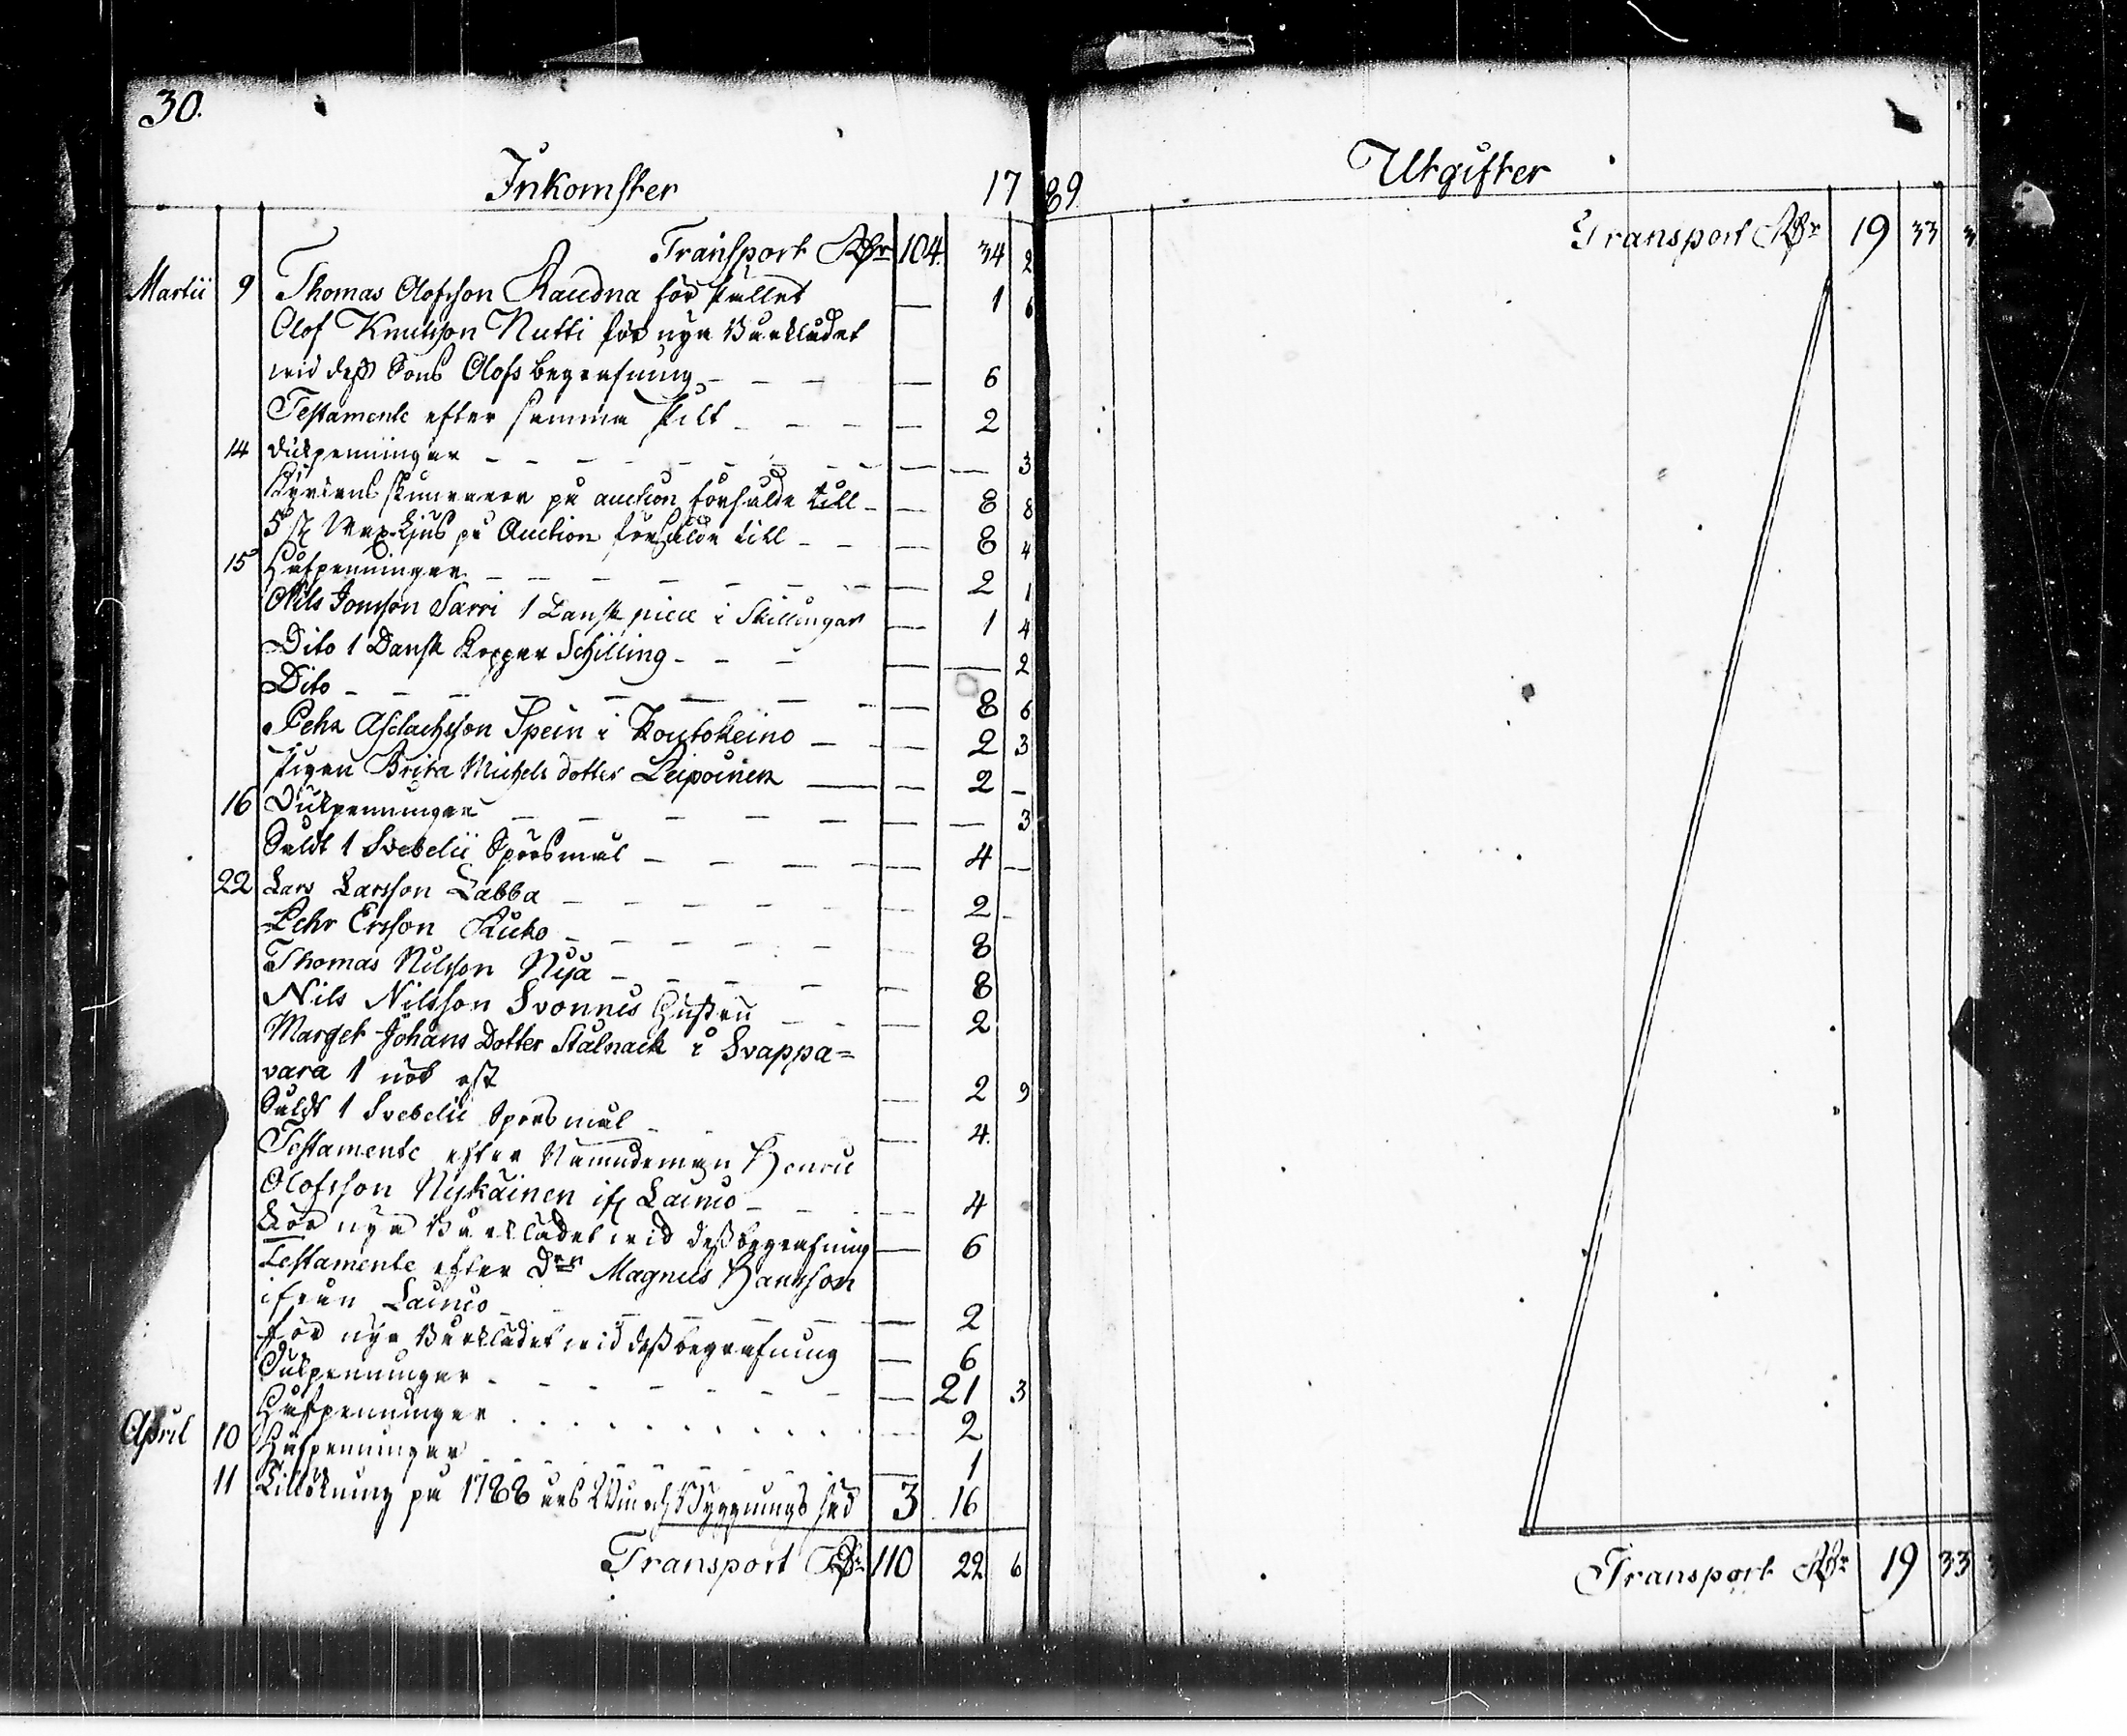 30.
Inkomster 17
Transport Rdr 104. 34 2
Martii 9 Thomas Olofsson Raudna för stället — 1 6
Olof Knutsson Nutti för nya Bårklädet
wid dess Sons Olofs begrafning — — 6
Testamente efter samma Pilt — — 2
14 Dukpenningar — — — 3
Kyrkans på auction försålde till — — 8 8
5 st Wax-Ljus på Auction försålde till — — 8 4
15 Håfpenningar — — 2 1
Nils Jonsson Sarri 1 Dansk piece i Skillingar — 1 4
Dito 1 Dansk Koppar Schilling — — — 2
Dito — — 8 6
Pehr Aslachsson Spein i Koutokeino — — 2 3
Pigan Brita Michels dotter Leipoinen — — 2 —
16 Dukpenningar — — — 3
Såldt 1 Svebelii Spörsmål — — 4 —
22 Lars Larsson Labba — — 2 —
Pehr Ersson Kuko — — 8
Thomas Nilsson Nia — — 8
Nils Nilsson Svonnis Hustru — — 2
Marget Johans Dotter Stålnack i Svappa=
vara 1 nöt ost — 2 9
Såldt 1 Svebelii Spörsmål — — 4.
Testamente efter Nämndeman Henric
Olofsson Niskainen ifr Lainio — — 4
För nya Bårklädet wid dess begrafning — 6
Testamente efter Magnus Hansson
ifrån Lainio — — 2
för nya Bårklädet wid dess begrafning — 6
Dukpenningar — — 21 3
Håfpenningar — 2
April 10 Håfpenningar — — 1
11 Tillökning på 1788 års Byggnings säd 3 16
Transport Rdr 110 22 6
89
Utgifter
Transport Rdr 19 33 3
Transport Rdr 19 33